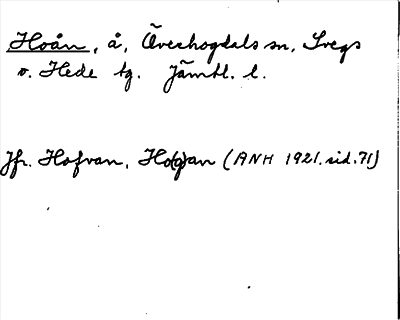 Hoån, å, Överhogdals sn, Svegs
o. Hede tg. Jämtl. l.
Jfr. Hofvan, Ho(g)an (ANH 1921. sid. 71)